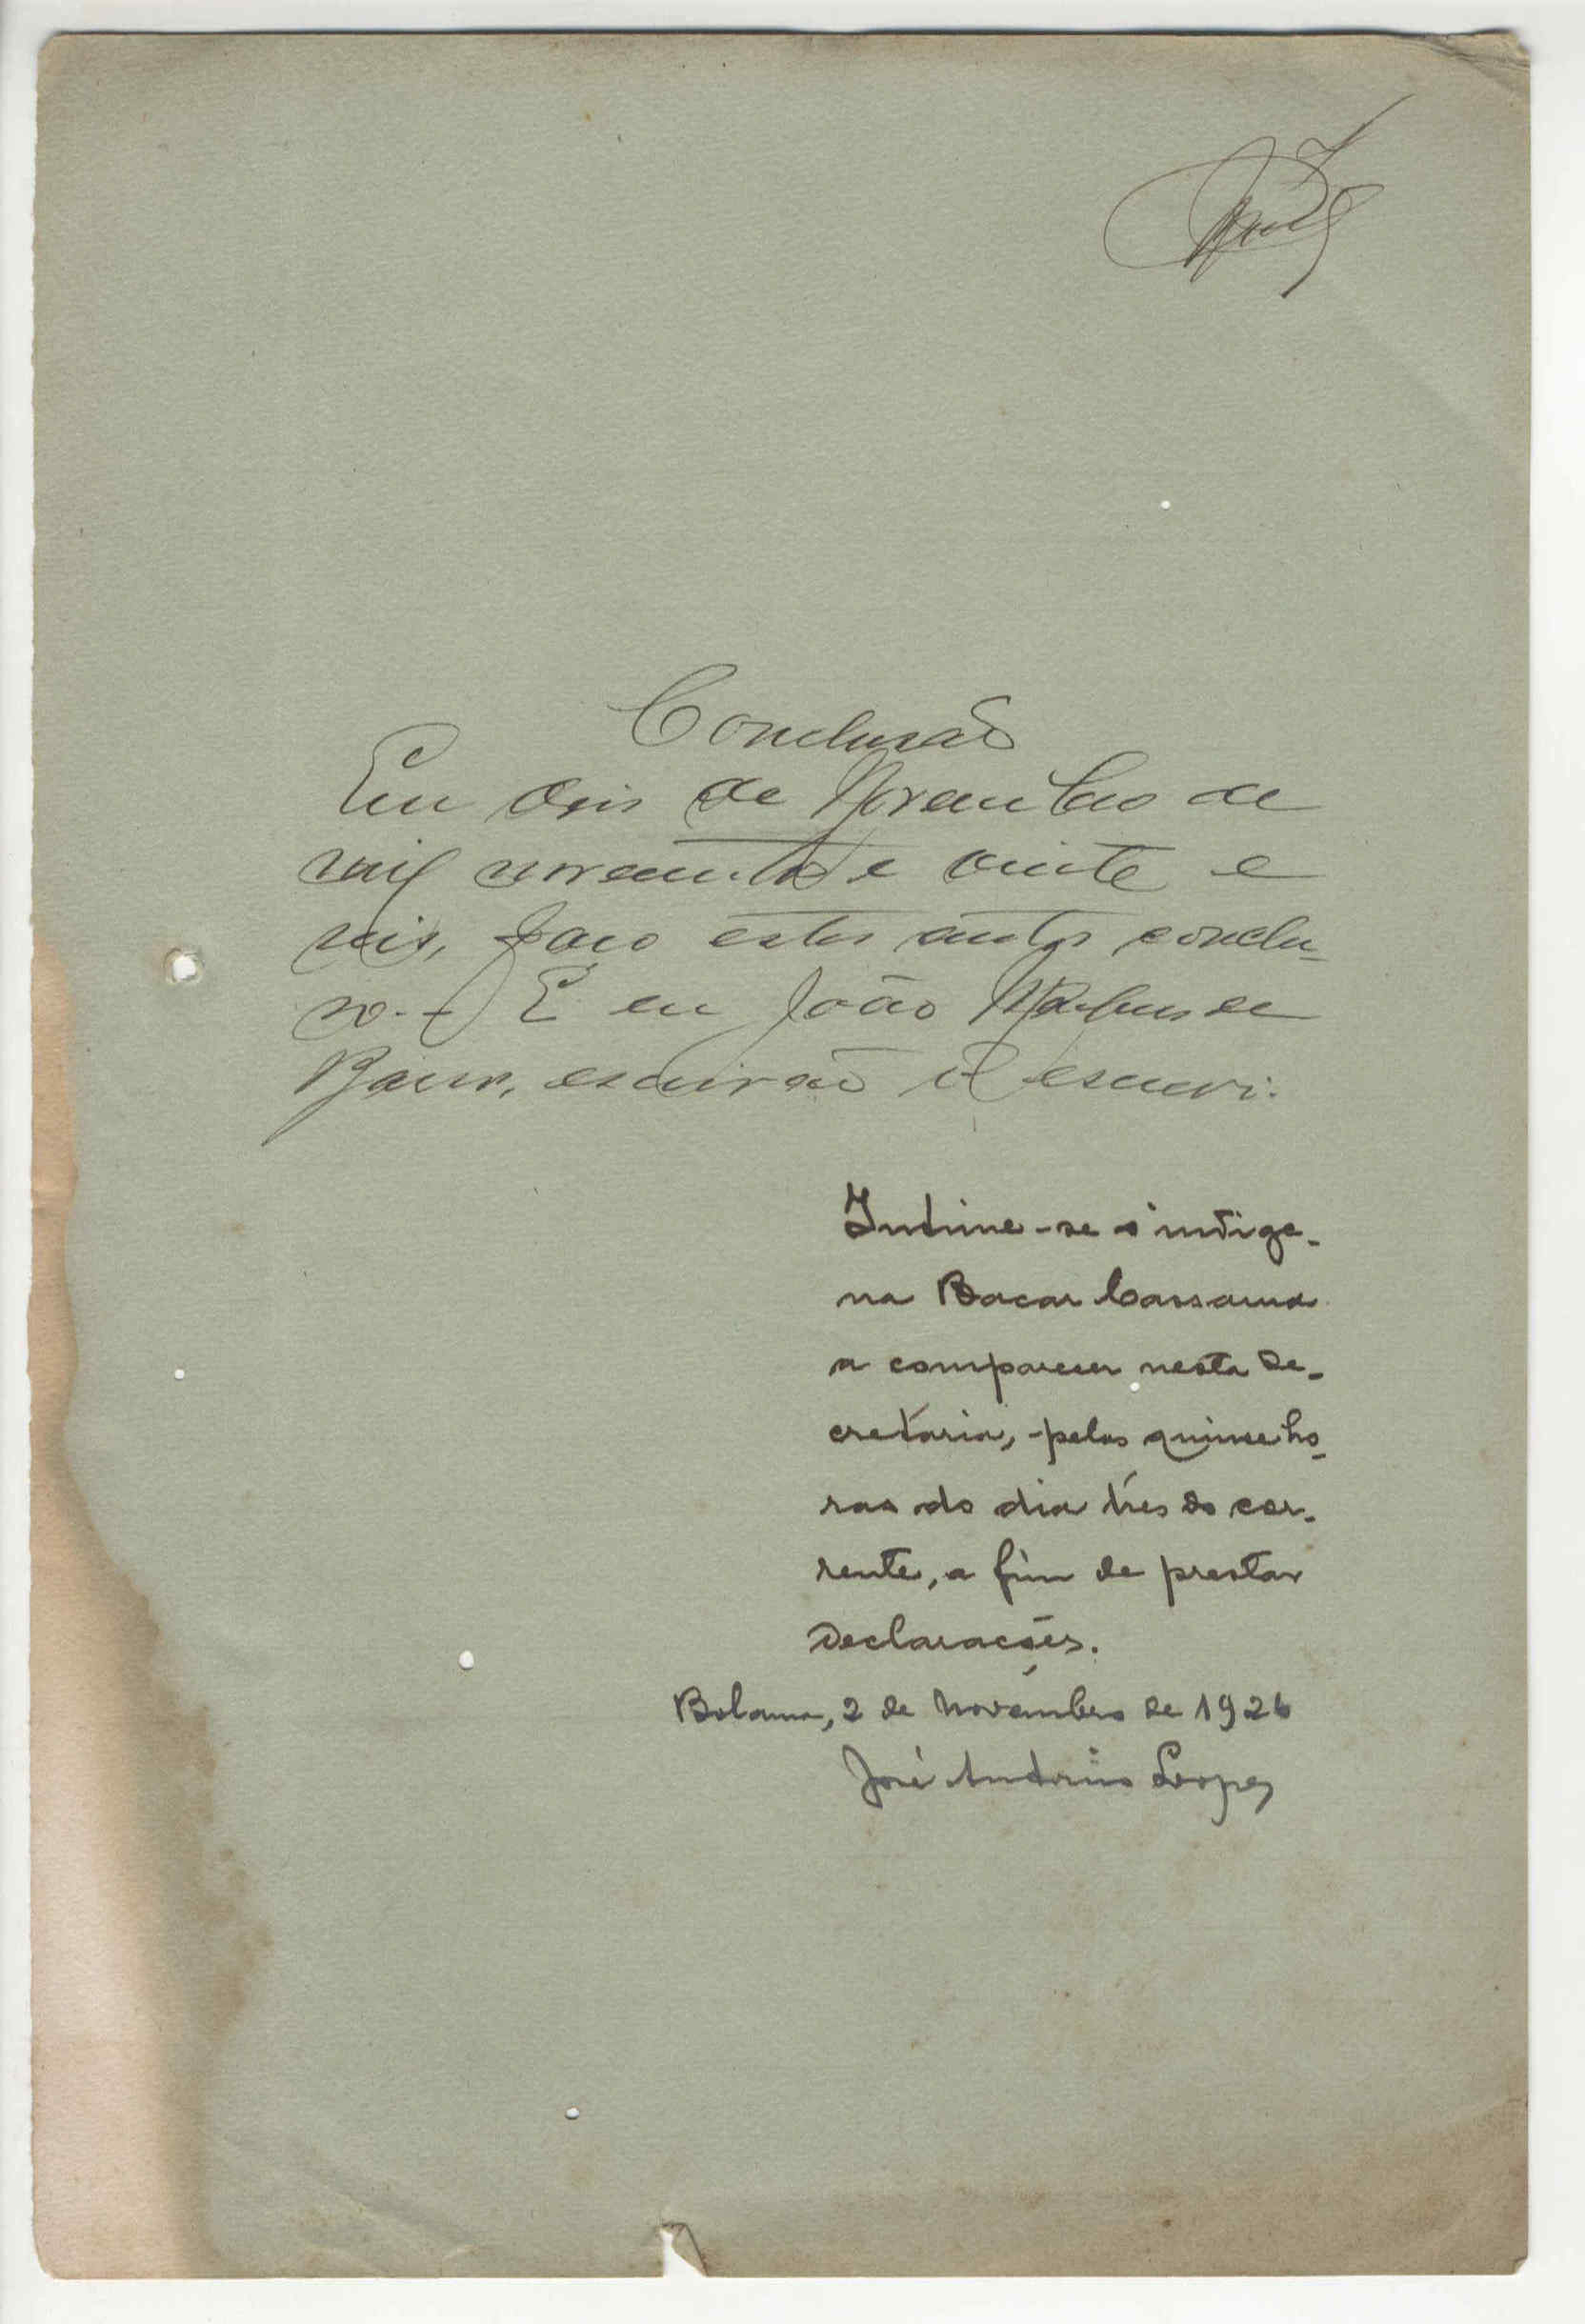 Conclusão
Em dois de Novembro de
mil novecentos e vinte e
seis, faço estes autos conclu-
so. - E eu João de
Barros, escrivão o escrevi.
Intime-se o indige-
na Bacar Cassama
a comparecer nesta Se-
cretaria, pelas quinse ho-
ras do dia três do cor-
rente, a fim de prestar
declarações.
Bolama, 2 de Novembro de 1926
José Antonio Lopes